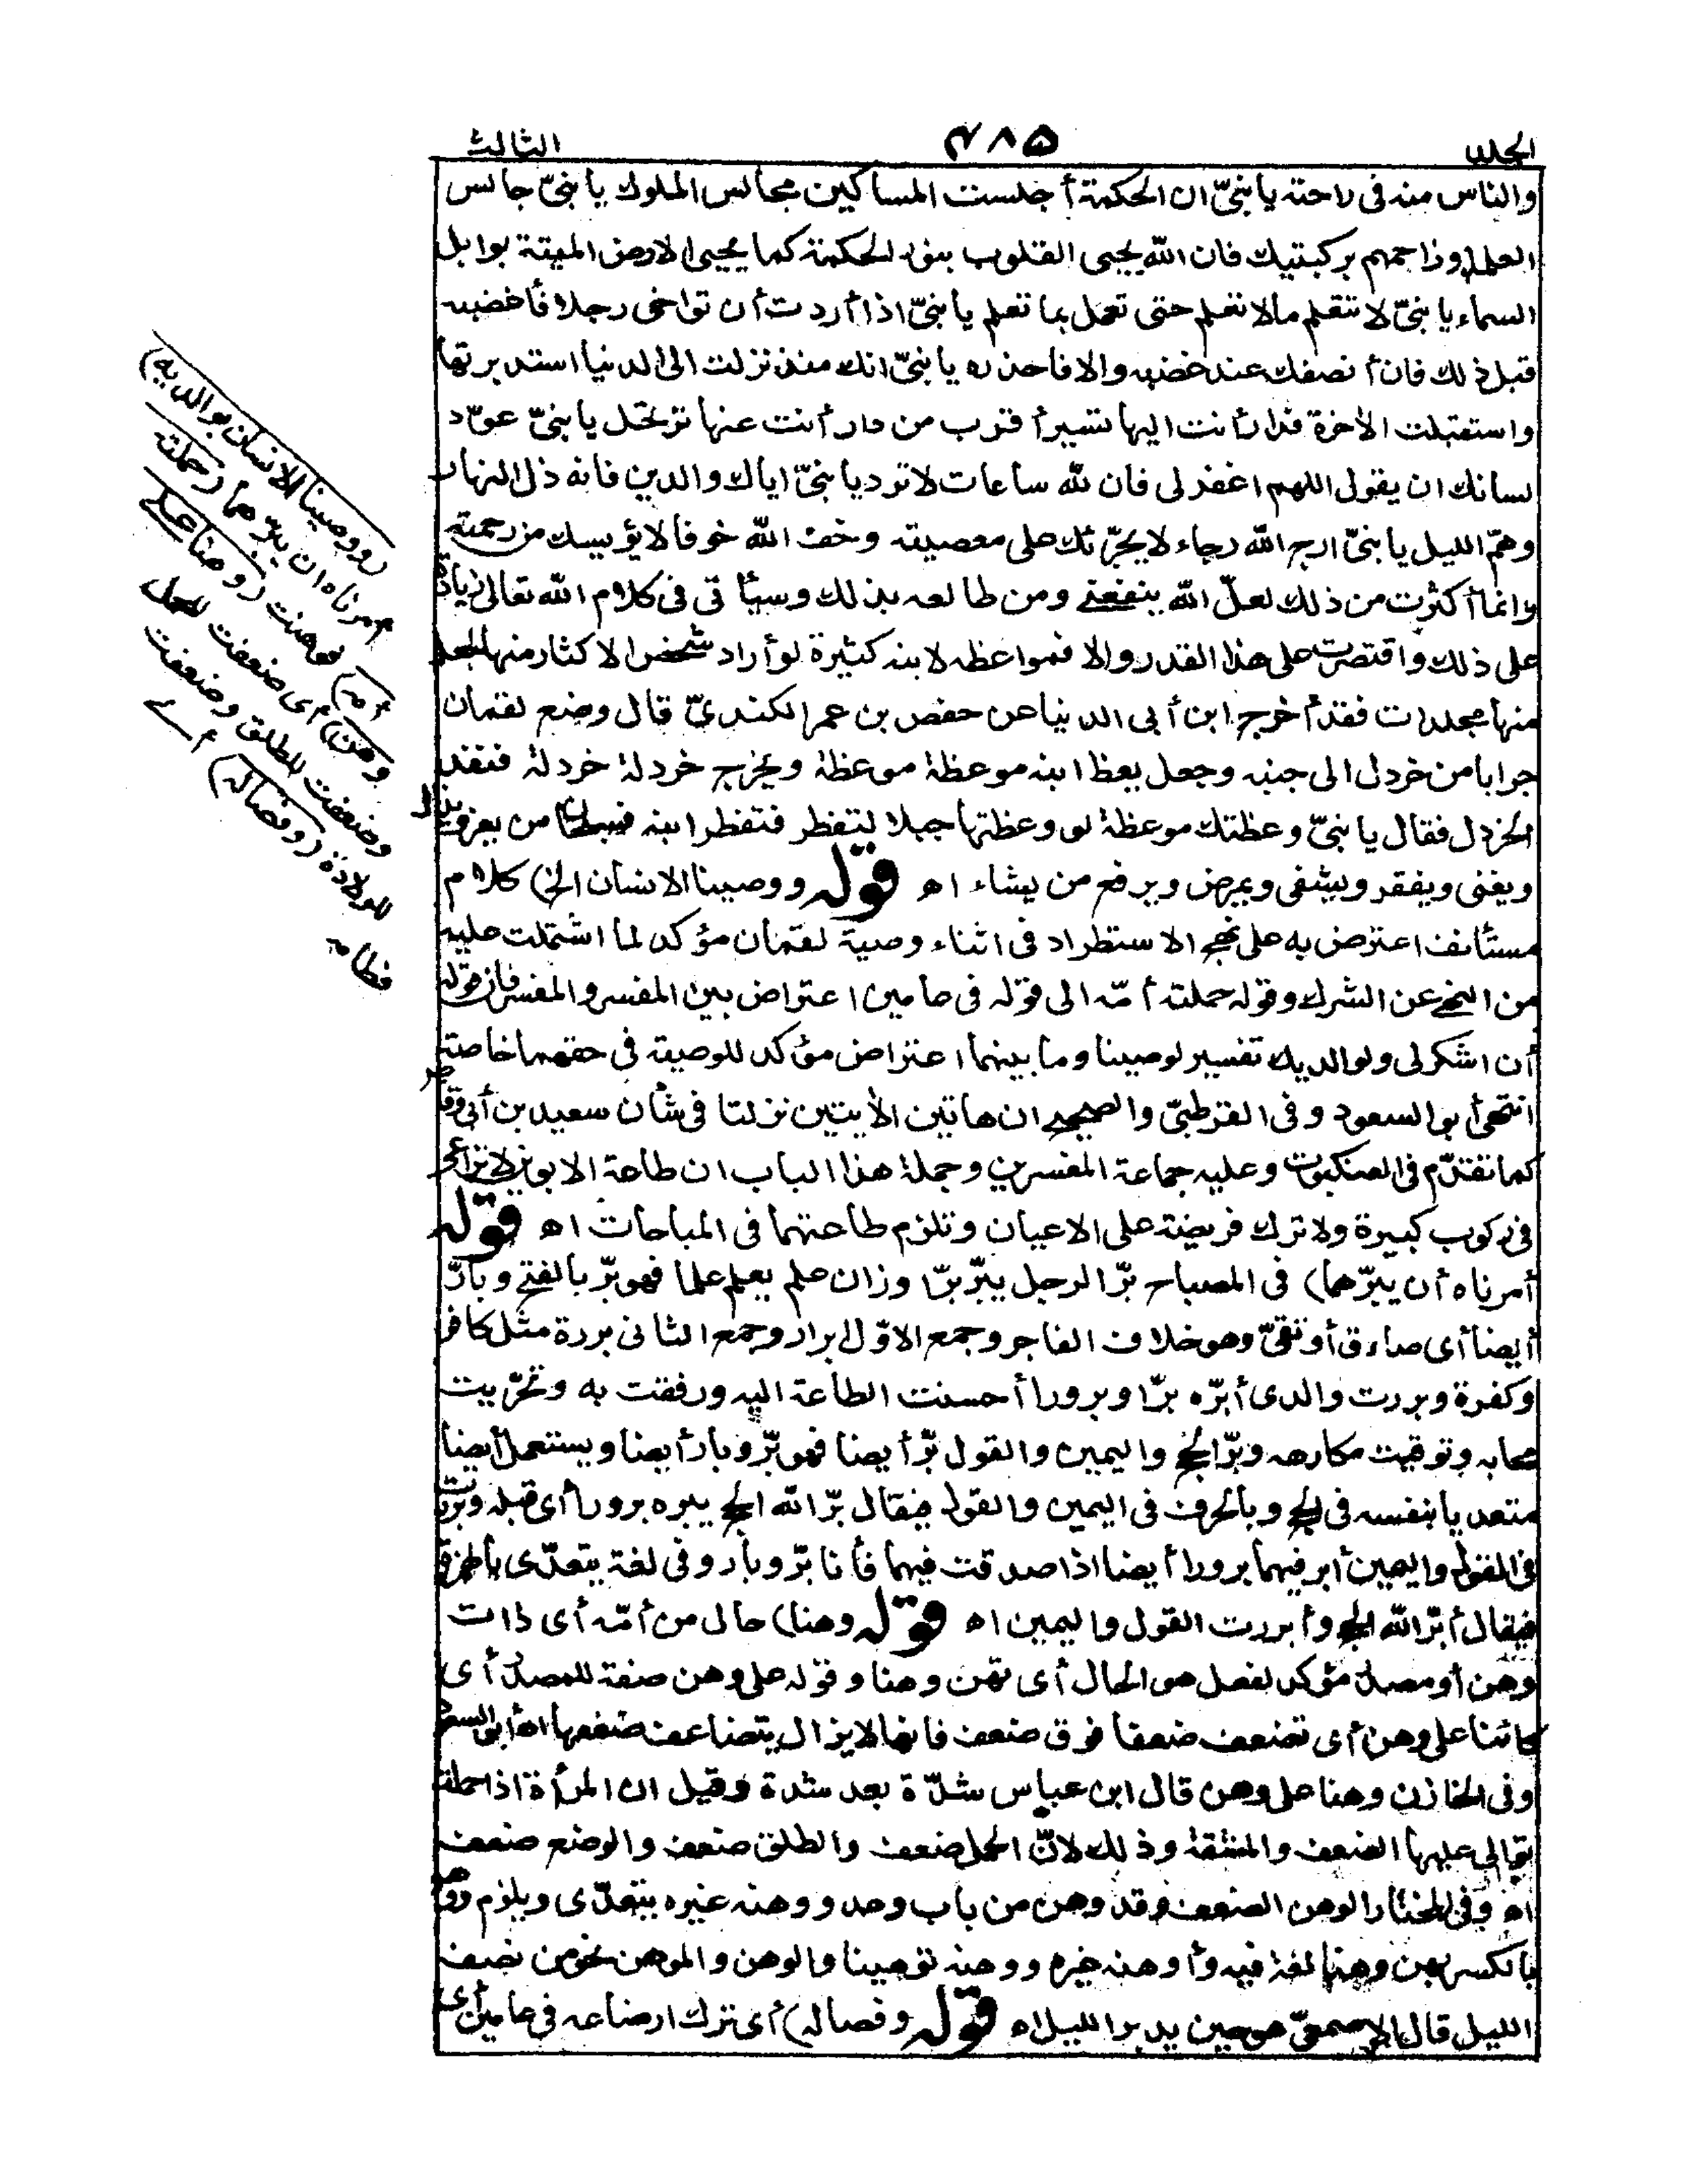 الجلد ۴۸۵ الثالث
والناس منه فى راحته يا بنىّ ان الحكمة أجلست المساكين مجالس الملوك يا بنىّ جالس
العلماء وزاحمهم بركبتيك فان الله يحيى القلوب بنور الحكمة كما يحيى الارض الميتة بوابل
السماء يا بنىّ لا تتعلم مالا تعلم حتى تعمل بما تعلم يا بنىّ اذا أردت أن تواخى رجلا فأغضبه
قبل ذلك فان أنصفك عند غضبه والا فاحذره يا بنىّ انك منذ نزلت الى الدنيا استدبرتها
واستقبلت الاخرة فدار أنت اليها تسير أقرب من دار أنت عنها ترتحل يا بنىّ عوّد
لسانك ان يقول اللهم اغفرلى فان لله ساعات لا ترد يا بنىّ اياك والدين فانه ذل النهار
وهمّ الليل يا بنىّ ارج الله رجاء لا يجرّئك على معصيته وخف الله خوفا لا يؤيسك من رحمته
وانما أكثرت من ذلك لعلّ الله ينفعنى ومن طالعه بذلك وسيأتى فى كلام الله تعالى زيادة
على ذلك واقتصرت على هذا القدر والا فمواعظه لابنه كثيرة لو أراد شخص الاكثار منها لجعل
منها مجلدات فقد أخرج ابن أبى الدنيا عن حفص بن عمر الكندىّ قال وضع لقمان
جرابا من خردل الى جنبه وجعل يعظ ابنه موعظة موعظة ويخرج خردلة خردلة فنفد
الخردل فقال يا بنىّ وعظتك موعظة لو وعظتها جبلا لتفطر فتفطر ابنه فسبحان من يعز ويذل
ويغنى ويفقر ويشفى ويمرض ويرفع من يشاء اه قوله ووصينا الانسان الخ) كلام
مستأنف اعترض به على نهج الاستطراد فى اثناء وصية لقمان مؤكد لما اشتملت عليه
من النهى عن الشرك وقوله حملته أمّه الى قوله فى عامين اعتراض بين المفسر والمفسر فان قوله
أن اشكر لى ولوالديك تفسير لوصينا وما بينهما اعتراض مؤكد للوصية فى حقهما خاصة
انتهى أبو السعود وفى القرطبىّ والصحيح ان هاتين الآيتين نزلتا فى شأن سعيد بن أبى وقاص
كما تقدّم فى العنكبوت وعليه جماعة المفسرين وجملة هذا الباب ان طاعة الابوين لا تراعى
فى ركوب كبيرة ولا ترك فريضة على الاعيان وتلزم طاعتهما فى المباحات اه قوله
أمرناه أن يبرّهما) فى المصباح برّ الرجل يبرّ برّا وزان علم يعلم علما فهو برّ بالفتح وبارّ
أيضا أى صادق أو تقىّ وهو خلاف الفاجر وجمع الاوّل ابرار وجمع الثانى بررة مثل كافر
وكفرة وبررت والدى أبرّه برّا وبرورا أحسنت الطاعة اليه ورفقت به وتحرّيت
محابه وتوقيت مكارهه وبرّ الحج واليمين والقول برّ أيضا فهو برّ وبار أيضا ويستعمل أيضا
متعديا بنفسه فى الحج وبالحرف فى اليمين والقول فيقال برّ الله الحج يبره برورا أى قبله وبررت
فى القول واليمين أبر فيهما برورا أيضا اذا صدقت فيهما فأنا برّ وبار وفى لغة يتعدّى بالهمزة
فيقال أبرّ الله الحج وأبررت القول واليمين اه قوله وهنا) حال من أمّه أى ذات
وهن أو مصدر مؤكد لفعل هو الحال أى تهن وهنا وقوله على وهن صفة للمصدر أى
كائنا على وهن أى تضعف ضعفا فوق ضعف فانها لا يزال يتضاعف ضعفها اه أبو السعود
وفى الخازن وهنا على وهن قال ابن عباس شدّة بعد شدة وقيل ان المرأة اذا حملت
توالى عليها الضعف والمشقة وذلك لانّ الحمل ضعف والطلق ضعف والوضع ضعف
اه وفى المختار الوهن الضعف وقد وهن من باب وعد ووهنه غيره يتعدّى ويلزم ووهن
بالكسر يهن وهنا لغة فيه وأوهنه غيره ووهنه توهينا والوهن والموهن نحو من نصف
الليل قال الاصمعىّ هو حين يدبر الليل اه قوله وفصاله) أى ترك ارضاعه فى عامين أى
(ووصينا الانسان بوالديه)
أمرناه ان يبرّهما (حملته
أمه) فوهنت (وهنا على
وهن) أى ضعفت للحمل
وضعفت للطلق وضعفت
للولادة (وفصاله) أى
فطامه